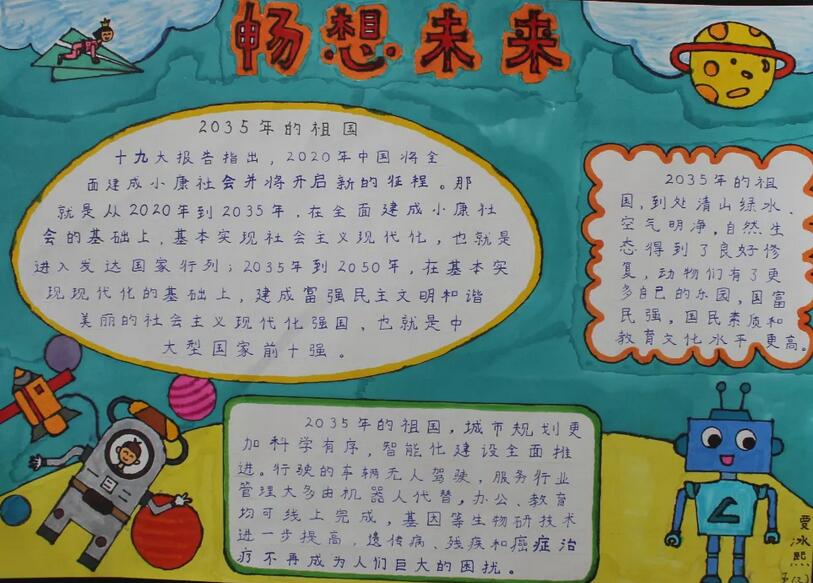 畅想未来
2035年的祖国
十九大报告指出,2020年中国将全
面建成小康社会并将开启新的征程。那
就是从2020年到2035年,在全面建成小康社
会的基础上,基本实现社会主义现代化,也就是
进入发达国家行列;2035年到2050年,在基本实
现现代化的基础上,建成富强民主文明和谐
美丽的社会主义现代化强国,也就是中
大型国家前十强。
2035年的祖
国,到处清山绿水、
空气明净,自然生
态得到了良好修
复,动物们有了更
多自己的乐园,国富
民强,国民素质和
教育文化水平更高。
2035年的祖国,城市规划更
加科学有序,智能化建设全面推
进。行驶的车辆无人驾驶,服务行业
管理大多由机器人代替,办公、教育
均可线上完成,基因等生物研技术
进一步提高,遗传病、残疾和癌症治
疗不再成为人们巨大的困扰。
贾冰熙